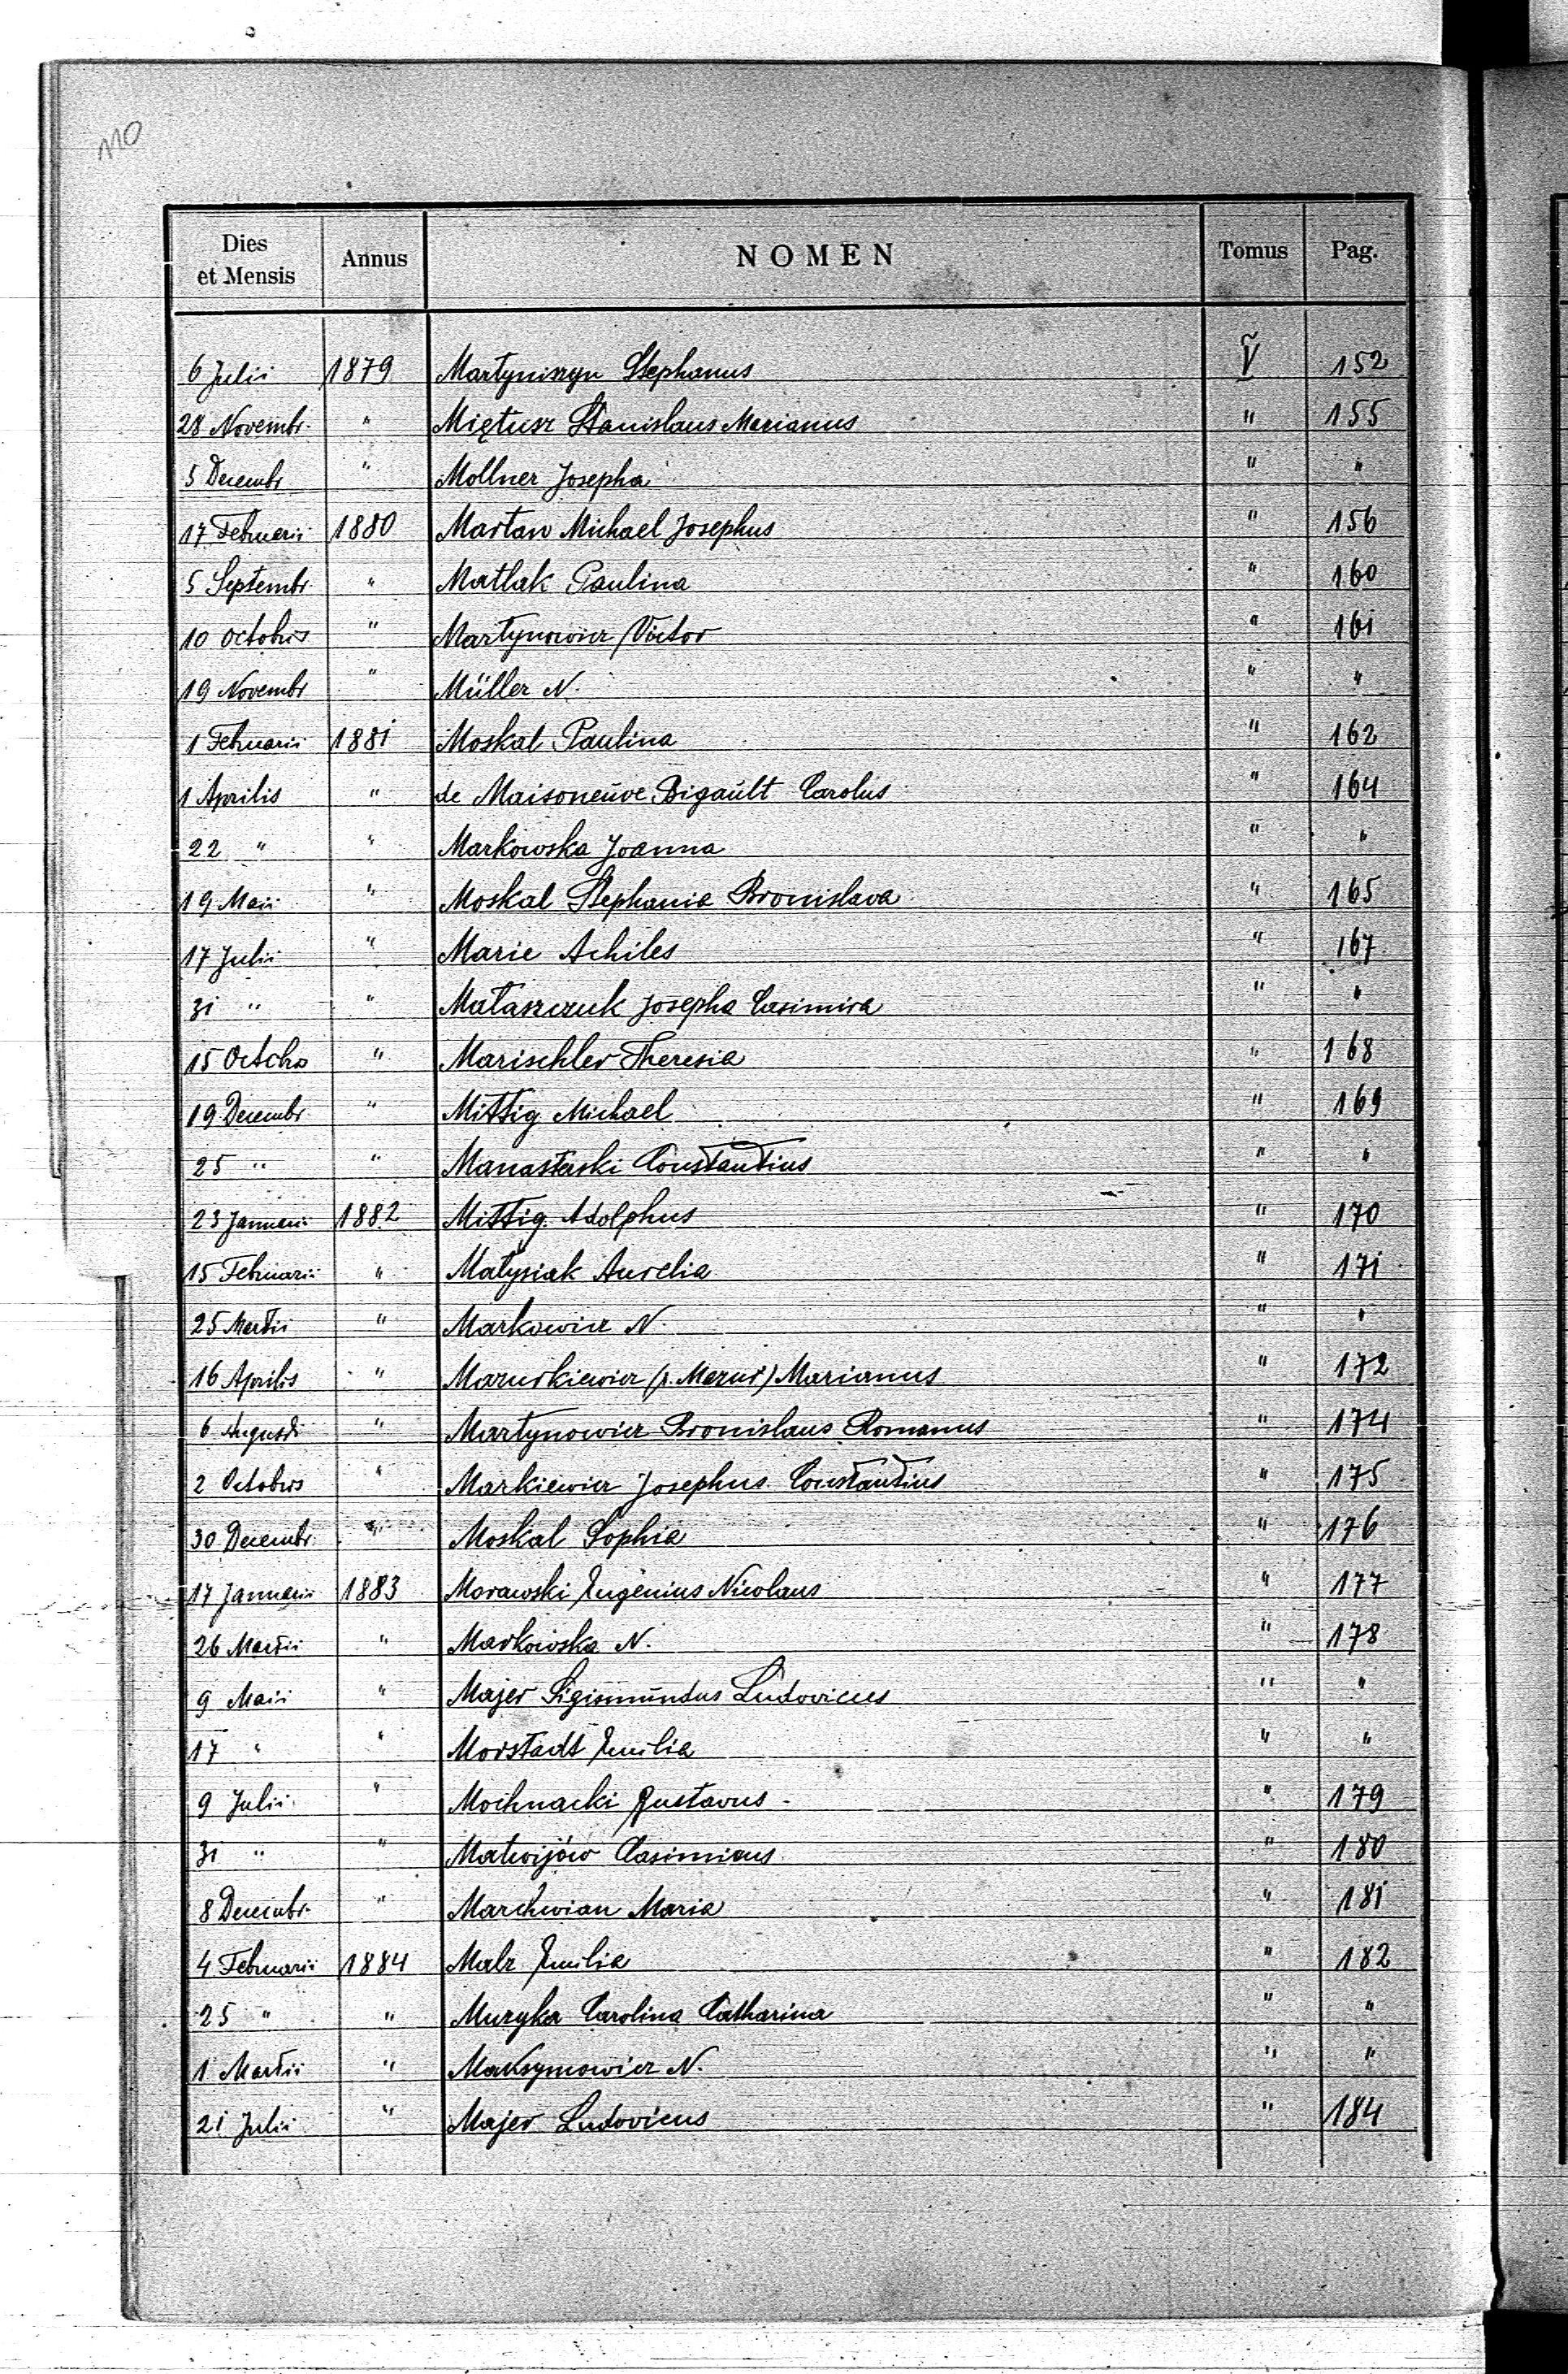 110
Dies et Mensis Annus NOMEN Tomus Pag.
6 Julii 1879 Martyniszyn Stephanus V 152
28 Novembr. " Miętusz Stanislaus Marianus " 155
5 Decembr " Mollner Josepha " "
17 Februarii 1880 Martan Michael Josephus " 156
5 Septembr. " Matlak Paulina " 160
10 Octobris " Martynowicz Victor " 161
19 Novembr " Müller N. " "
1 Februarii 1881 Moskal Paulina " 162
1 Aprilis " de Maisoneuve Bigault Carolus " 164
22 " " Markowska Joanna " "
19 Maii " Moskal Stephania Bronislava " 165
17 Julii " Marie Achiles " 167
31 " " Mataszczuk Josepha Casimira " "
15 Octobr " Marischler Theresia " 168
19 Decembr " Mittig Michael " 169
25 " " Manasterski Constantius " "
23 Januarii 1882 Mittig Adolphus " 170
15 Februarii " Matysiak Aurelia " 171
25 Martii " Markowicz N. " "
16 Aprilis " Mazurkiewicz (r. Mazur) Marianus " 172
6 Augusti " Martynowicz Bronislaus Romanus " 174
2 Octobris " Markiewicz Josephus Constantius " 175
30 Decembr. " Moskal Sophia " 176
17 Januarii 1883 Morawski Eugenius Nicolaus " 177
26 Martii " Markowska N. " 178
9 Maii " Majer Sigismundus Ludovicus " "
17 " " Morstadt Emilia " "
9 Julii " Mochnacki Gustavus " 179
31 " " Matwijów Casimirus " 180
8 Decembr. " Marchwian Maria " 181
4 Februarii 1884 Malz Emilia " 182
25 " " Muzyka Carolina Catharina " "
1 Martii " Maksymowicz N. " "
21 Julii " Majer Ludovicus " 184